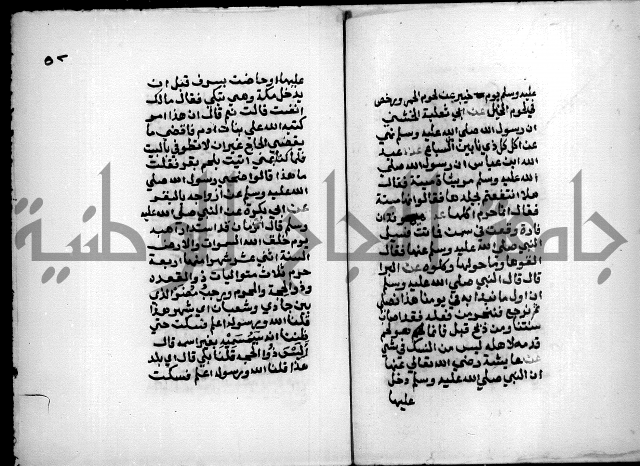 عليه وسلم يوم خيبر عن لحوم الحمر ورخص
في لحوم الخيل عن ابي ثعلبة الخشني
ان رسول الله صلى الله عليه وسلم نهى
عن اكل كل ذي ناب من السباع عن عبد
الله ابن عباس ان رسول الله صلى
الله عليه وسلم مر بشاة ميتة فقال
هلا انتفعتم بجلدها قالوا انها ميتة
فقال انما حرم اكلها عن ميمونة ان
فارة وقعت في سمن فماتت فسيل
النبي صلى الله عليه وسلم عنها فقال
القوها وما حولها وكلوه عن البرا
قال قال النبي صلى الله عليه وسلم
ان اول ما نبدا به في يومنا هذا نصلي
ثم نرجع فننحر من فعله فقد اصاب
سنتنا ومن ذبح قبل فانما هو لحم
قدمه لاهله ليس من النسك في شي
عن عايشة رضي الله تعالى عنها
ان النبي صلى الله عليه وسلم دخل
عليها
٥٢
عليها وحاضت بسرف قبل ان
يدخل مكة وهي تبكي فقال مالك
انفست قالت نعم قال ان هذا امر
كتبه الله على بنات ادم فاقضي ما
يقضي الحاج غير ان لا تطوفي بالبيت
فلما كنا بمنى اتيت بلحم بقر فقلت
ما هذا قالوا ضحى رسول الله صلى
الله عليه وسلم عن ازواجه بالبقر
عن ابي بكرة عن النبي صلى الله عليه
وسلم قال الزمان قد استدار كهيئة
يوم خلق الله السموات والارض
السنة اثنى عشر شهرا منها اربعة
حرم ثلاث متواليات ذو القعدة
وذو الحجة والمحرم ورجب مضر الذي
بين جمادي وشعبان اي شهر هذا
قلنا الله ورسوله اعلم فسكت حتى
ظننا انه سيسميه بغير اسمه قال
اليس ذو الحجة قلنا بلى قال اي بلد
هذا قلنا الله ورسوله اعلم فسكت